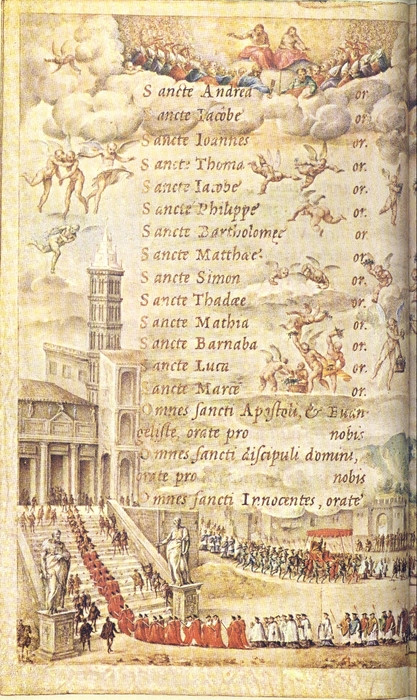 Sancte Andrea or.
Sancte Iacobe or.
Sancte Ioannes or.
Sancte Thoma or.
Sancte Iacobe or.
Sancte Philippe or.
Sancte Bartholomeę or.
Sancte Matthæe or.
Sancte Simon or.
Sancte Thadæe or.
Sancte Mathia or.
Sancte Barnaba or.
Sancte Luca or.
Sancte Marce or.
Omnes sancti Apostoli, & Euan-
geliste, orate pro nobis
Omnes sancti discipuli domini,
orate pro nobis
Omnes sancti Innocentes, orate